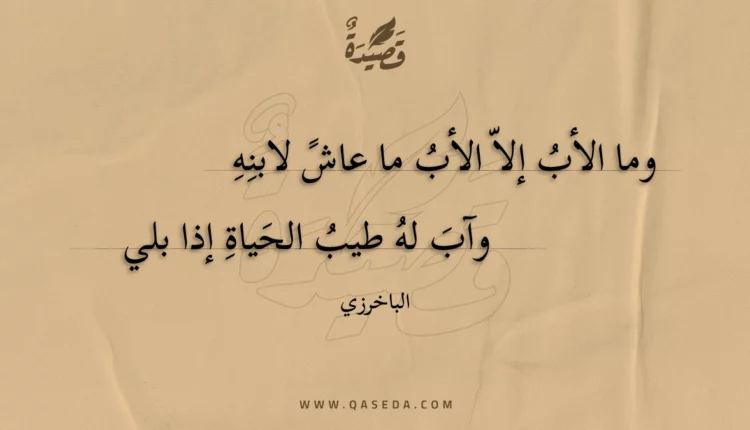 قَصِيدَةٌ
وما الأبُ إلاّ الأبُ ما عاشً لابنِهِ
وآبَ لهُ طيبُ الحَياةِ إذا بلي
الباخرزي
WWW.QASEDA.COM